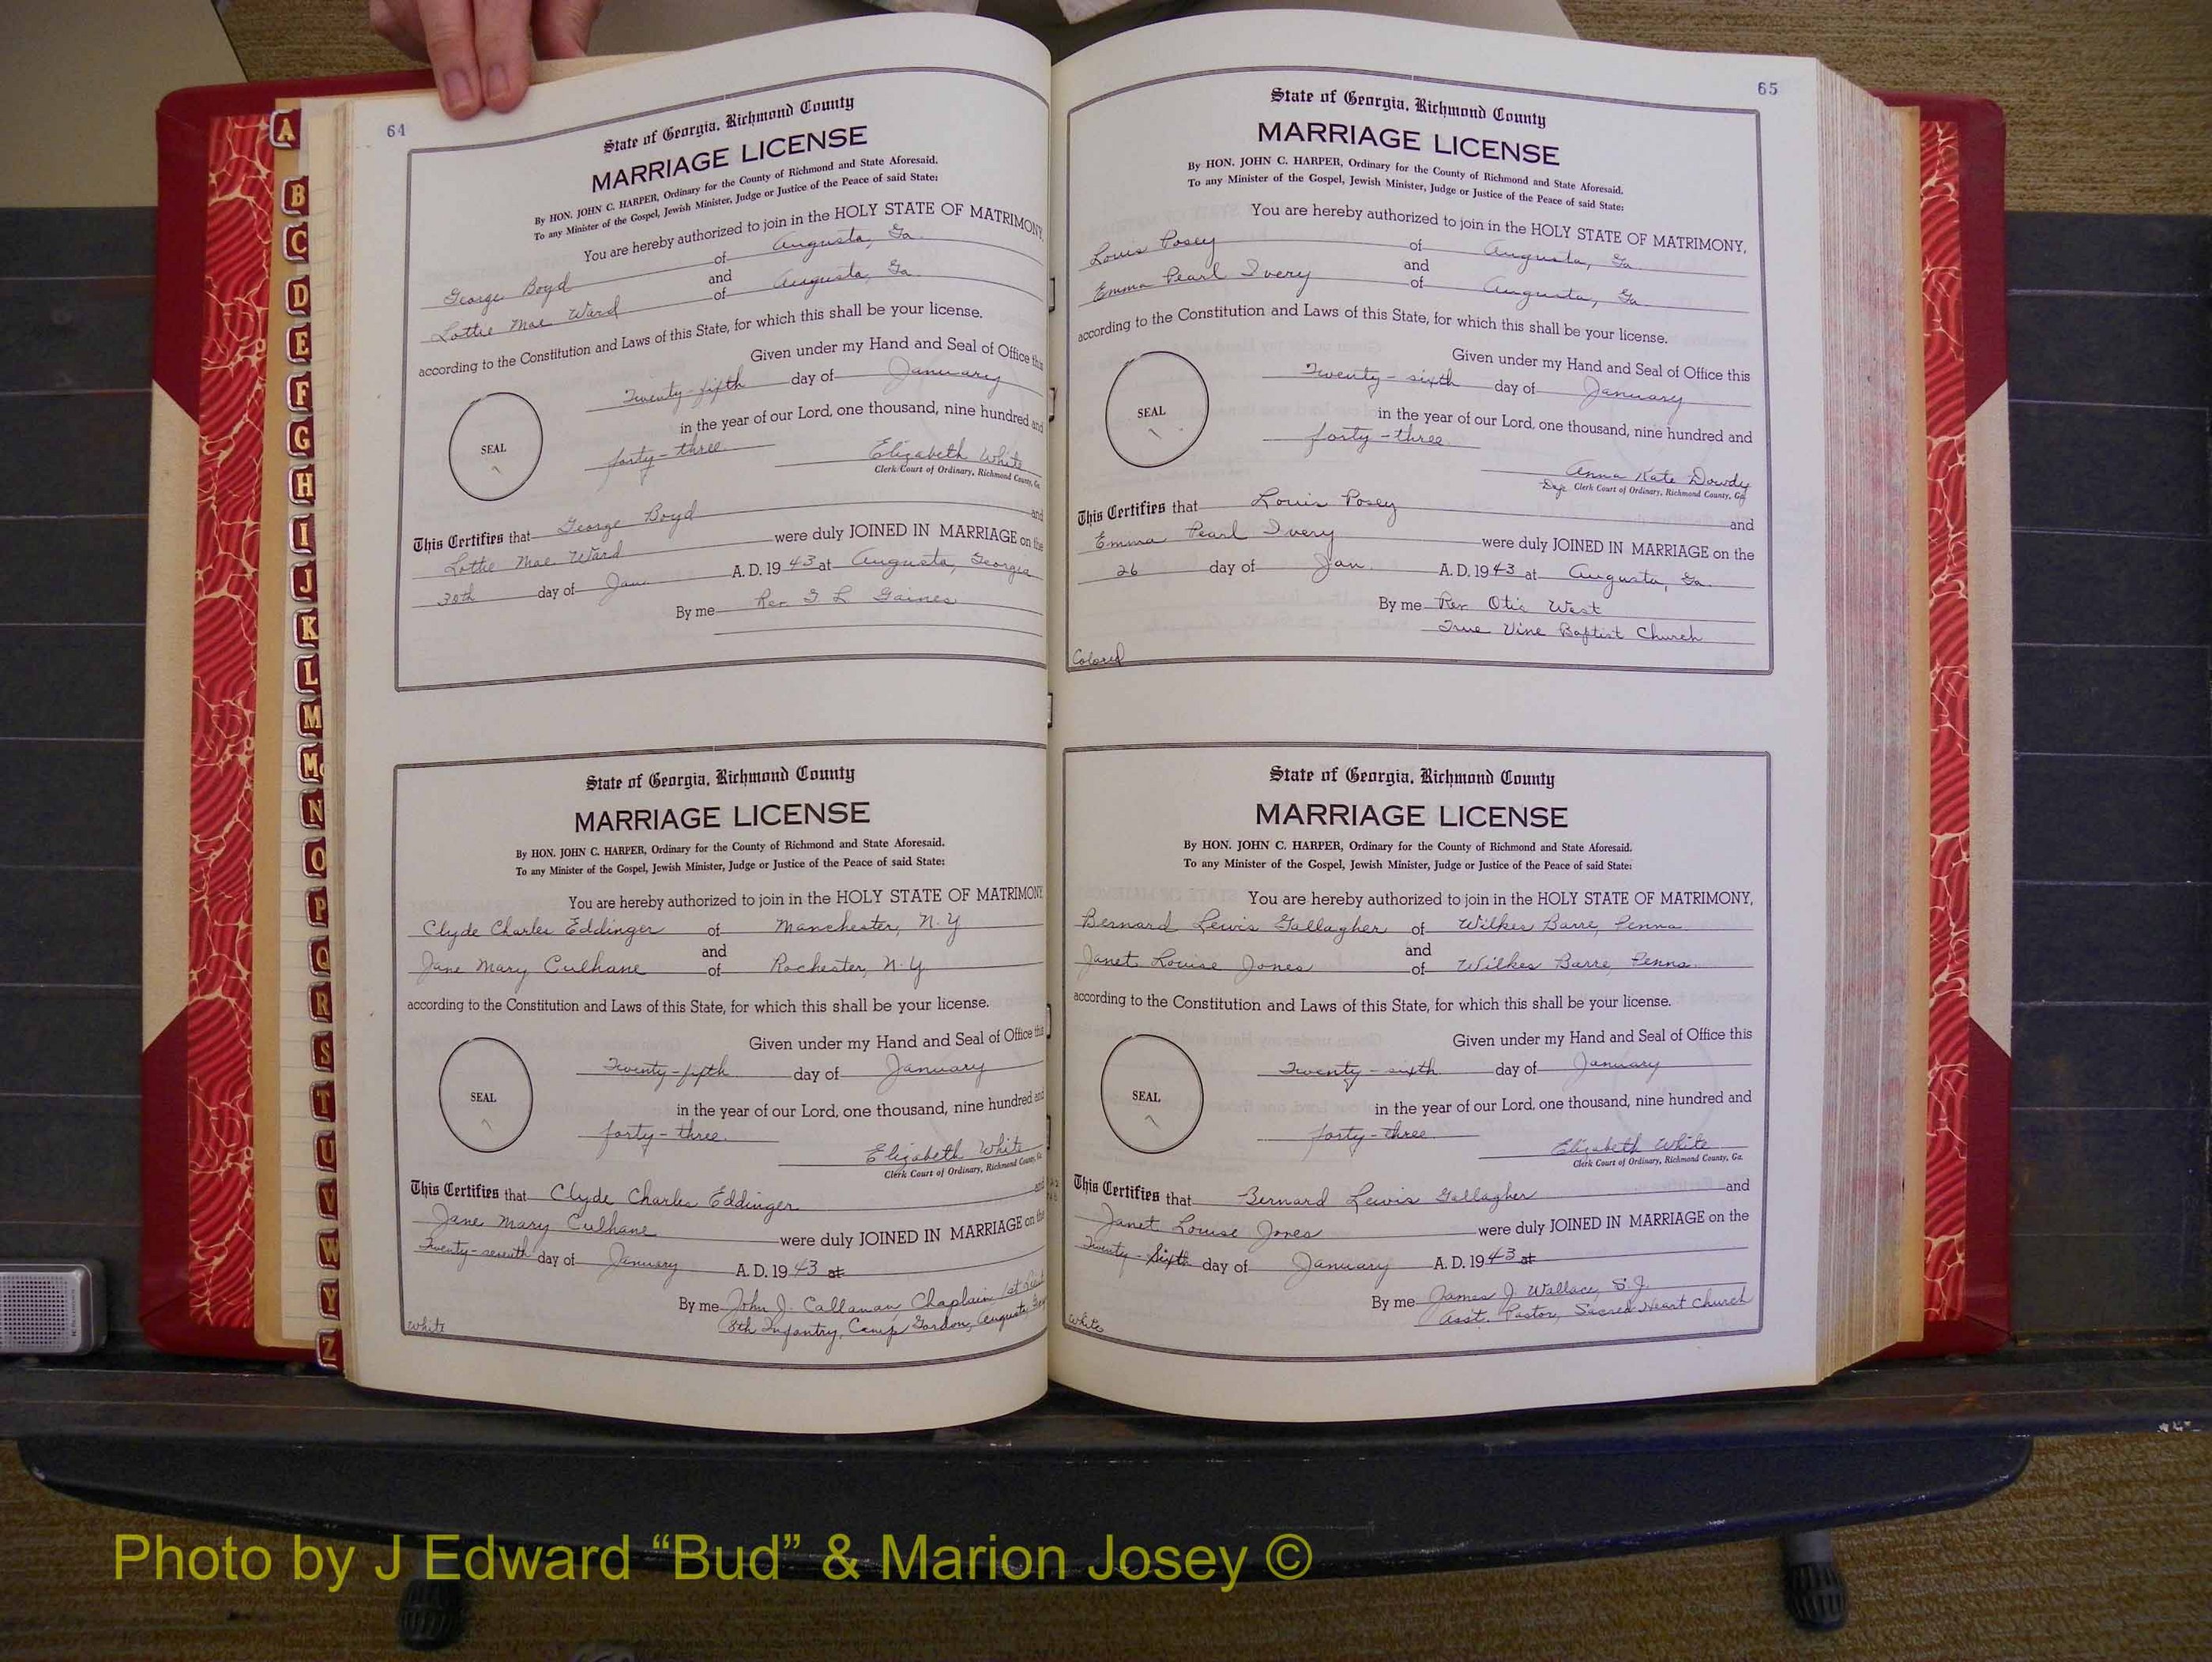 64
State of Georgia, Richmond County
MARRIAGE LICENSE
By HON. JOHN C. HARPER, Ordinary for the County of Richmond and State Aforesaid.
To any Minister of the Gospel, Jewish Minister, Judge or Justice of the Peace of said State:
You are hereby authorized to join in the HOLY STATE OF MATRIMONY,
George Boyd of Augusta, Ga.
and
Lottie Mae Ward of Augusta, Ga
according to the Constitution and Laws of this State, for which this shall be your license.
Given under my Hand and Seal of Office this
Twenty-fifth day of January
in the year of our Lord, one thousand, nine hundred and
SEAL
forty-three
Elizabeth White
Clerk Court of Ordinary, Richmond County, Ga.
This Certifies that George Boyd and
Lottie Mae Ward were duly JOINED IN MARRIAGE on the
30th day of Jan. A. D. 19 43 at Augusta, Georgia
By me Rev. G L Gaines
State of Georgia, Richmond County
MARRIAGE LICENSE
By HON. JOHN C. HARPER, Ordinary for the County of Richmond and State Aforesaid.
To any Minister of the Gospel, Jewish Minister, Judge or Justice of the Peace of said State:
You are hereby authorized to join in the HOLY STATE OF MATRIMONY
Clyde Charles Eddinger of Manchester, N.Y
and
Jane Mary Culhane of Rochester, N.Y.
according to the Constitution and Laws of this State, for which this shall be your license.
Given under my Hand and Seal of Office this
Twenty-fifth day of January
SEAL
in the year of our Lord, one thousand, nine hundred and
forty-three.
Elizabeth White
Clerk Court of Ordinary, Richmond County, Ga
This Certifies that Clyde Charles Eddinger and
Jane Mary Culhane were duly JOINED IN MARRIAGE on the
Twenty-seventh day of January A. D. 19 43 at
By me John J. Callanan, Chaplain, 1st
8th Infantry, Camp Gordon, Augusta,
White
65
State of Georgia, Richmond County
MARRIAGE LICENSE
By HON. JOHN C. HARPER, Ordinary for the County of Richmond and State Aforesaid.
To any Minister of the Gospel, Jewish Minister, Judge or Justice of the Peace of said State:
You are hereby authorized to join in the HOLY STATE OF MATRIMONY,
Louis Posey of Augusta, Ga.
and
Emma Pearl Ivery of Augusta, Ga
according to the Constitution and Laws of this State, for which this shall be your license.
Given under my Hand and Seal of Office this
Twenty-sixth day of January
SEAL
in the year of our Lord, one thousand, nine hundred and
forty-three
Anna Kate Dowdy
Dep. Clerk Court of Ordinary, Richmond County, Ga.
This Certifies that Louis Posey and
Emma Pearl Ivery were duly JOINED IN MARRIAGE on the
26 day of Jan. A. D. 19 43 at Augusta, Ga.
By me Rev Otis West
True Vine Baptist Church
Colored
State of Georgia, Richmond County
MARRIAGE LICENSE
By HON. JOHN C. HARPER, Ordinary for the County of Richmond and State Aforesaid.
To any Minister of the Gospel, Jewish Minister, Judge or Justice of the Peace of said State:
You are hereby authorized to join in the HOLY STATE OF MATRIMONY,
Bernard Lewis Gallagher of Wilkes Barre, Penna
and
Janet Louise Jones of Wilkes Barre, Penna.
according to the Constitution and Laws of this State, for which this shall be your license.
Given under my Hand and Seal of Office this
Twenty-sixth day of January
SEAL
in the year of our Lord, one thousand, nine hundred and
forty-three
Elizabeth White
Clerk Court of Ordinary, Richmond County, Ga.
This Certifies that Bernard Lewis Gallagher and
Janet Louise Jones were duly JOINED IN MARRIAGE on the
Twenty-Sixth day of January A. D. 19 43 at
By me James J. Wallace, S.J.
Asst. Pastor, Sacred Heart Church
White
A
B
C
D
E
F
G
H
I
J
K
L
M
Mc
N
O
P
Q
R
S
T
U
V
W
Y
Z
Photo by J Edward “Bud” & Marion Josey ©